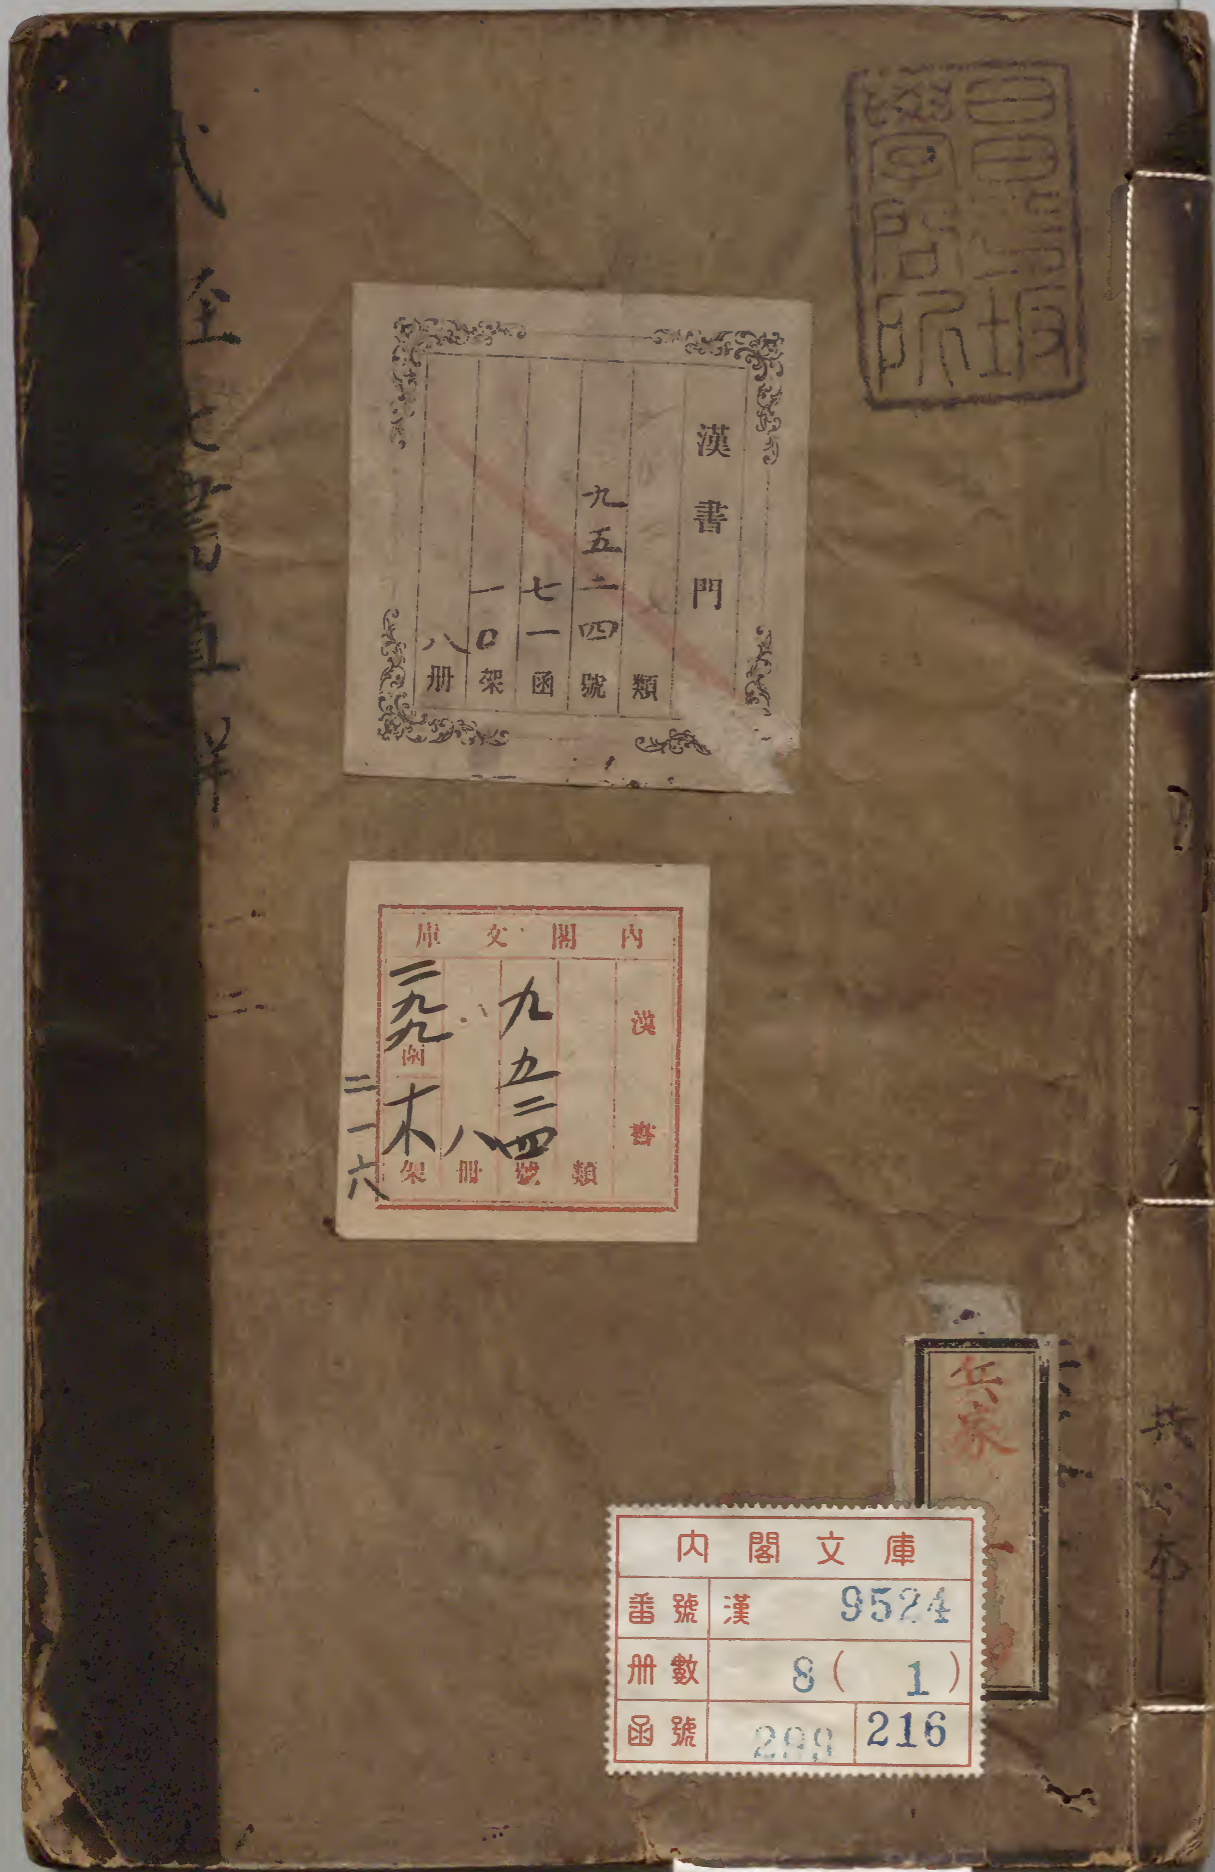 昌平坂
學問所
漢書門
類
九五二四號
七一函
一〇架
八册
內閣文庫
漢書
類
九五二四號
八冊
二九九函
木架
二一六
兵家
內閣文庫
番號 漢 9524
冊數 8(1)
函號 299 216
共八本